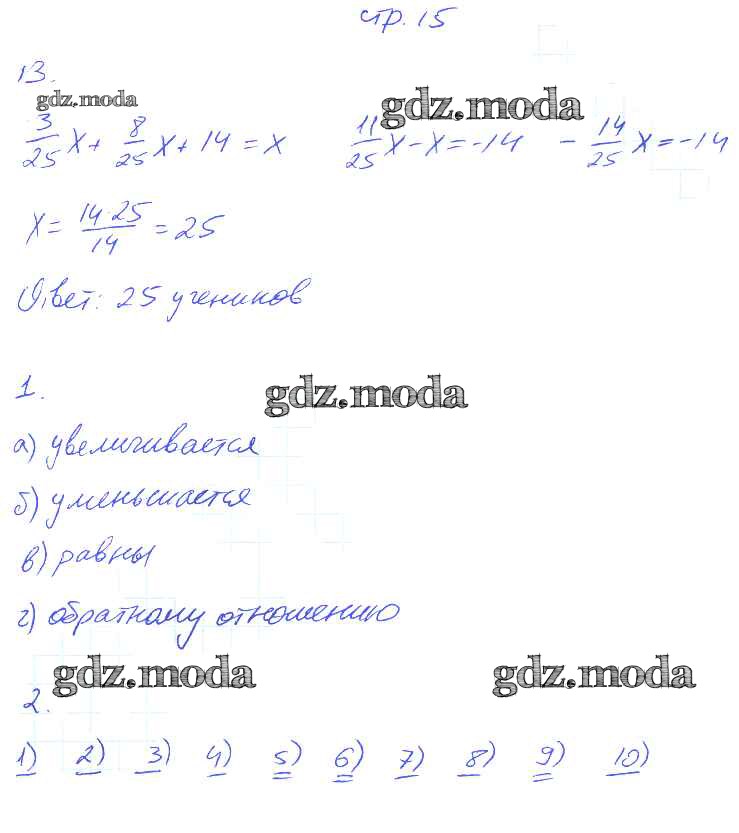 стр. 15
13.
gdz.moda
gdz.moda
3/25 x + 8/25 x + 14 = x 11/25 x - x = -14 - 14/25 x = -14
x = 14·25/14 = 25
Ответ: 25 учеников
1.
gdz.moda
а) увеличивается
б) уменьшается
в) равны
г) обратному отношению
gdz.moda gdz.moda
2.
1) 2) 3) 4) 5) 6) 7) 8) 9) 10)